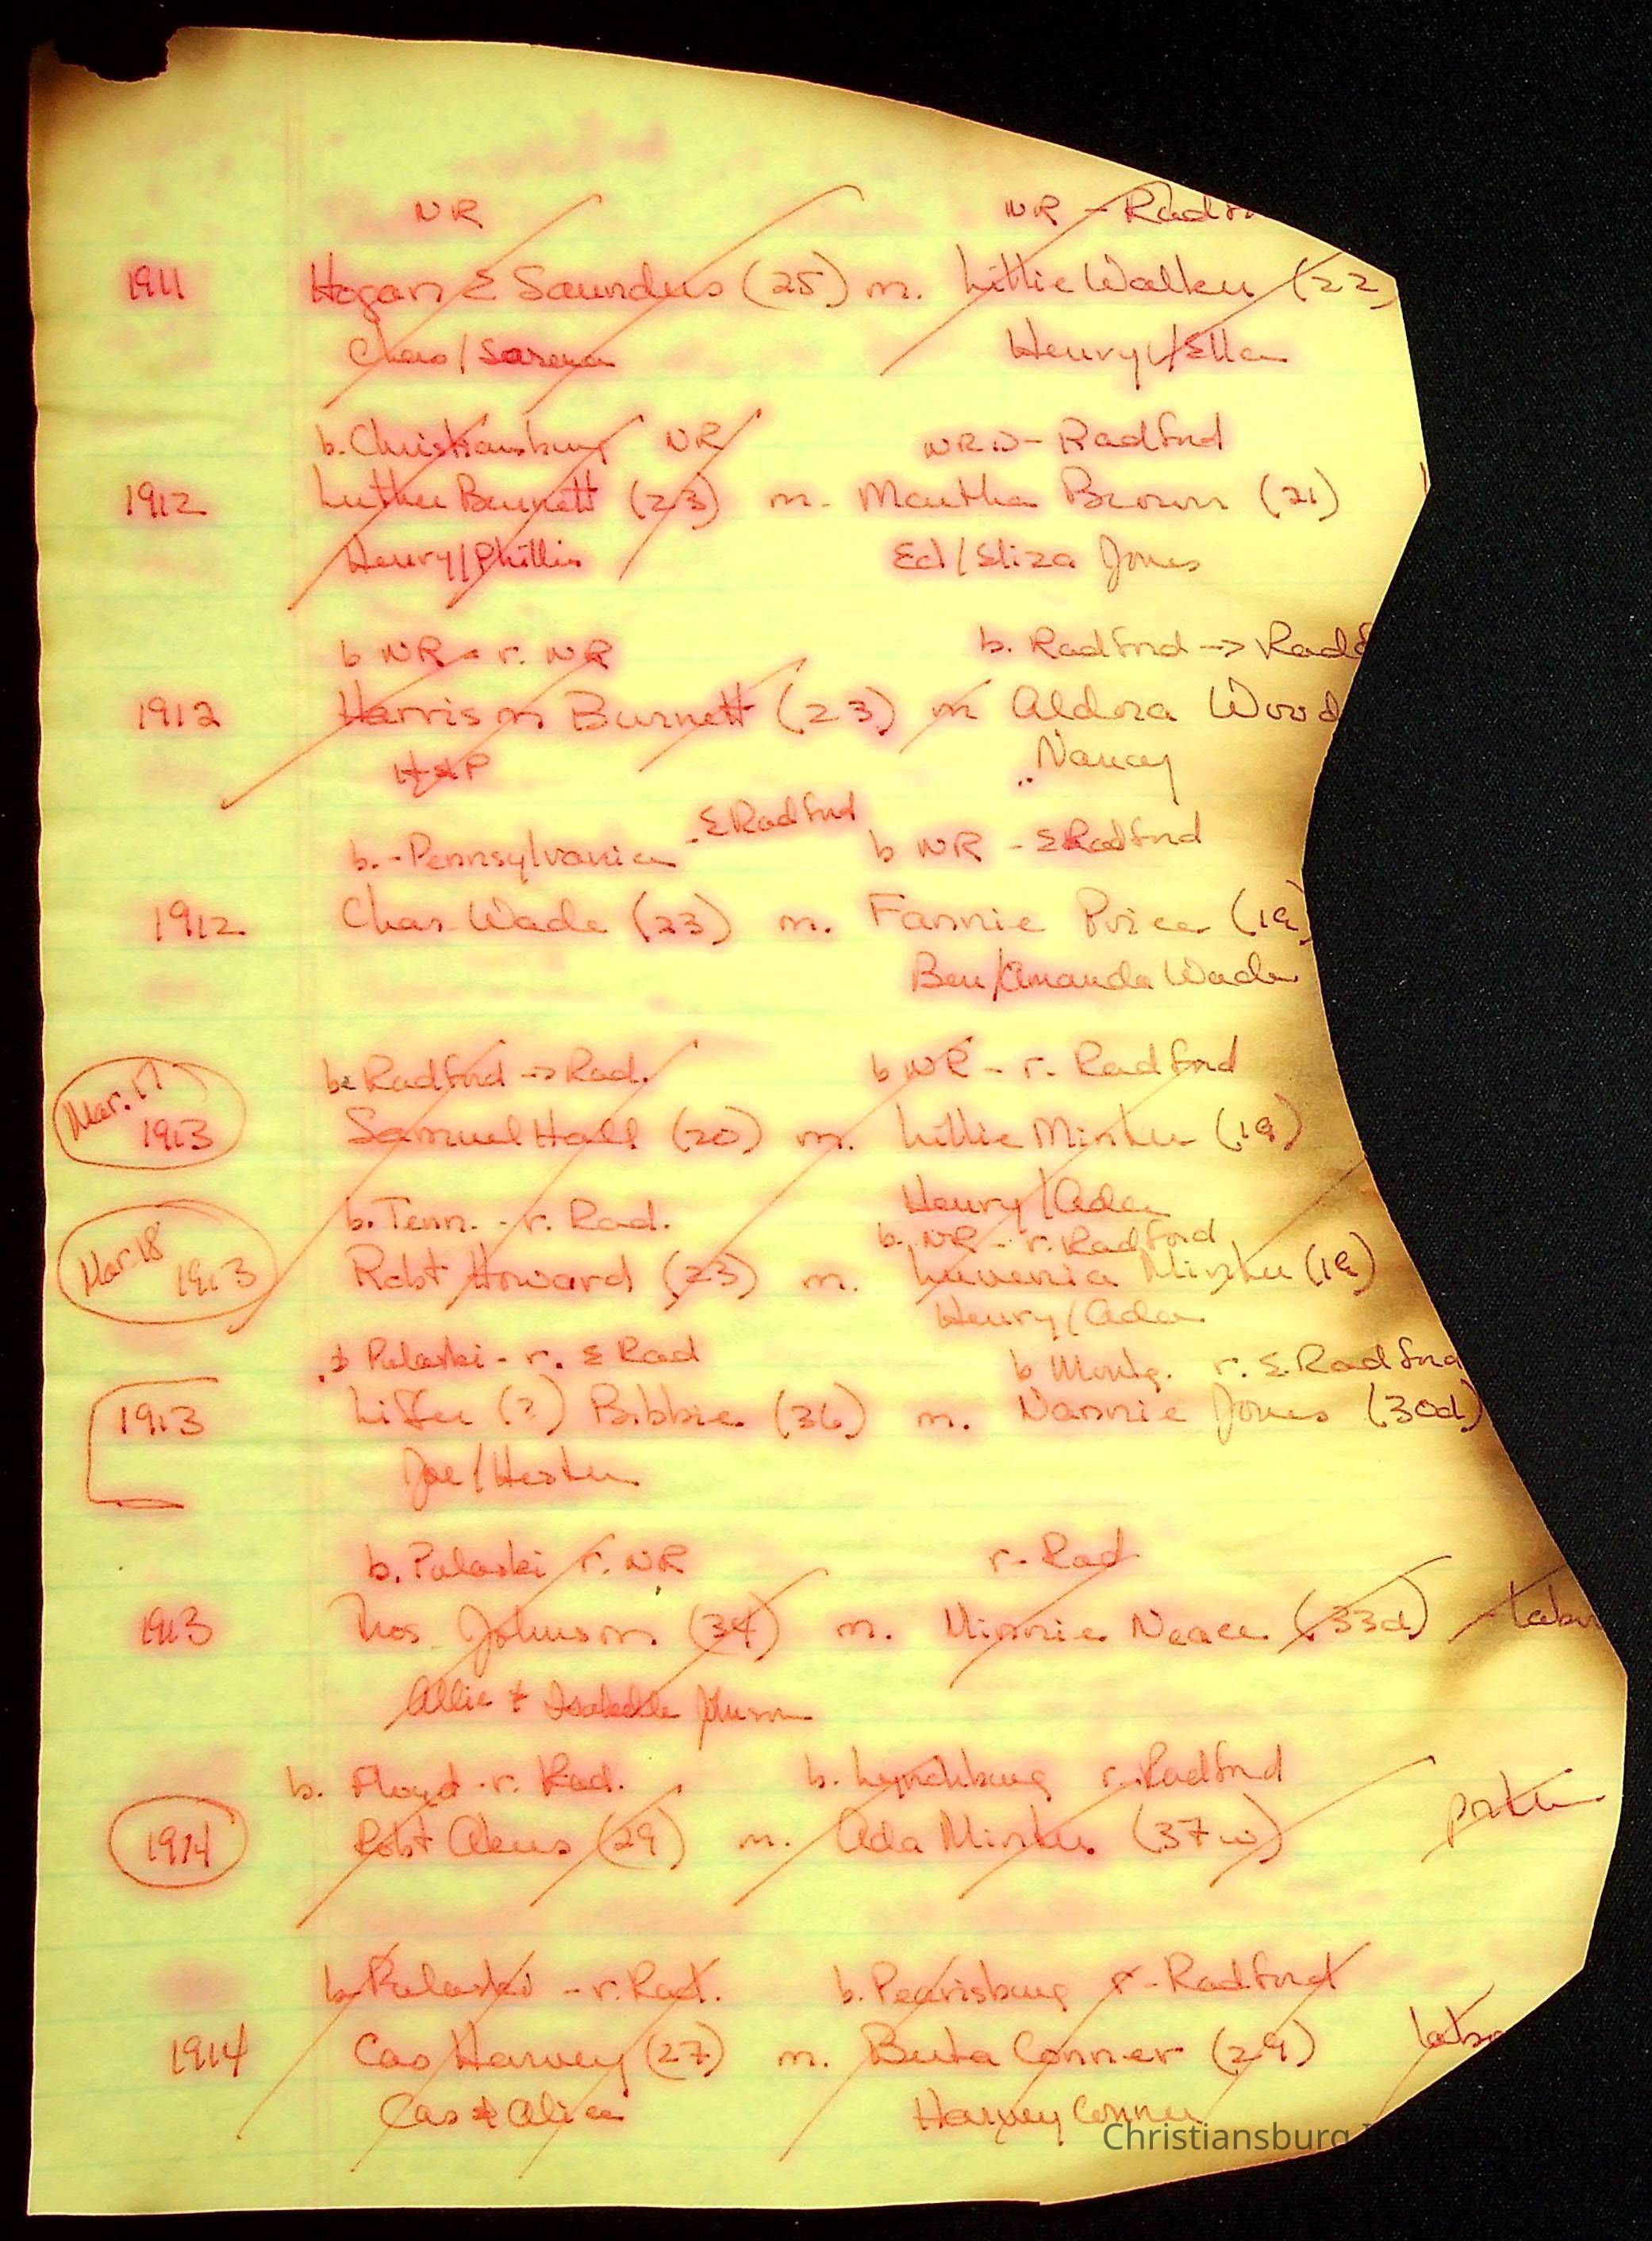 NR NR - Radfor
1911 Hogan E Saunders (25) m. Littie Walker (22)
Chas / Sarena Henry / Ella
b. Christiansburg NR NR - Radford
1912 Luther Burnett (23) m. Martha Brown (21)
Henry / Phillis Ed / Eliza Jones
b NR - r. NR b. Radford -> Radf
1912 Harrison Burnett (23) m Aldora Wood
H & P Nancy
b. - Pennsylvania - E Radford b NR - E Radford
1912 Chas. Wade (23) m. Fannie Price (19)
Ben / Amanda Wade
b. Radford -> Rad. b NR - r. Radford
Mar. 17 1913 Samuel Hall (20) m. Lillie Minter (19)
Henry / Ada
b. Tenn. - r. Rad. b. NR - r. Radford
Mar. 18 1913 Robt Howard (23) m. Luvenia Minter (19)
Henry / Ada
b Pulaski - r. E Rad b Montg. r. E. Radford
1913 (?) Bibbie (36) m. Nannie Jones (30d)
Joe / Hester
b. Pulaski r. NR r. Rad
1913 Thos Johnson (34) m. Minnie (33d) - labor
Allie & Isabelle Johnson
b. Floyd - r. Rad. b. Lynchburg r. Radford
1914 Robt Akers (29) m. Ada Minter (37w) porter
b. Pulaski - r. Rad. b. Pearisburg r - Radford
1914 Cas Harvey (27) m. Berta Conner (29) labor
Cas & Alice Harvey Conner
Christiansburg